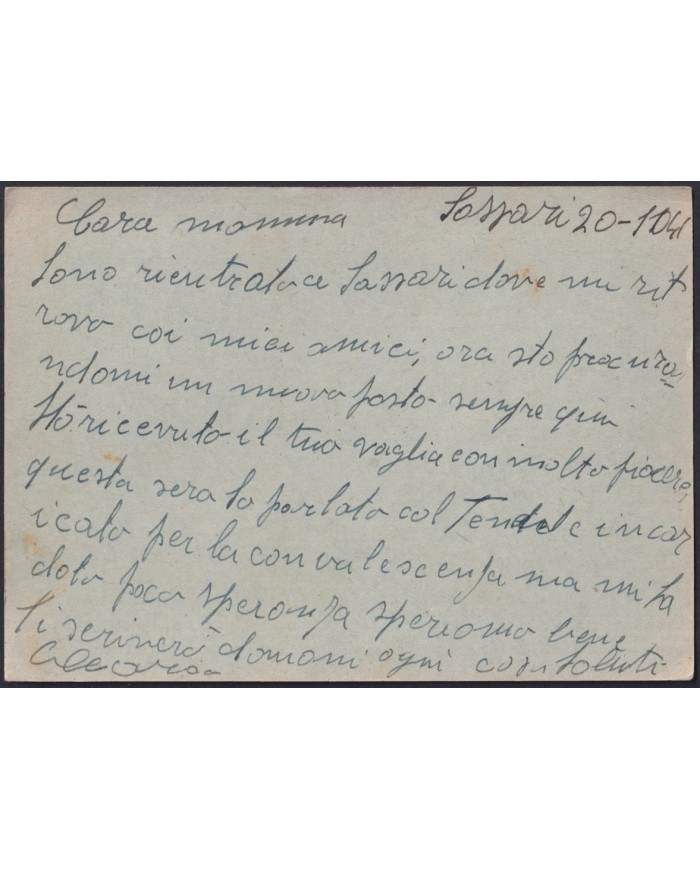 Cara mamma Sassari 20-1041
Sono rientrato a Sassari dove mi rit
rovo coi miei amici, ora sto procura
ndomi un nuovo posto sempre qui
Hò ricevuto il tuo vaglia con molto piacere,
questa sera ho parlato col Ten incar
icato per la convalescenza ma mi ha
dato poca speranza speriamo bene
ti scriverò domani ogni cosa Saluti